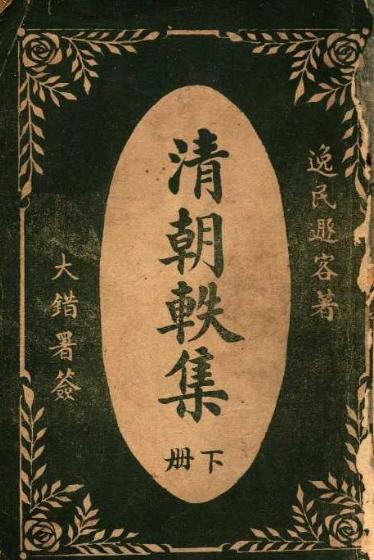 逸民遯客著
清朝軼集
下冊
大錯署簽